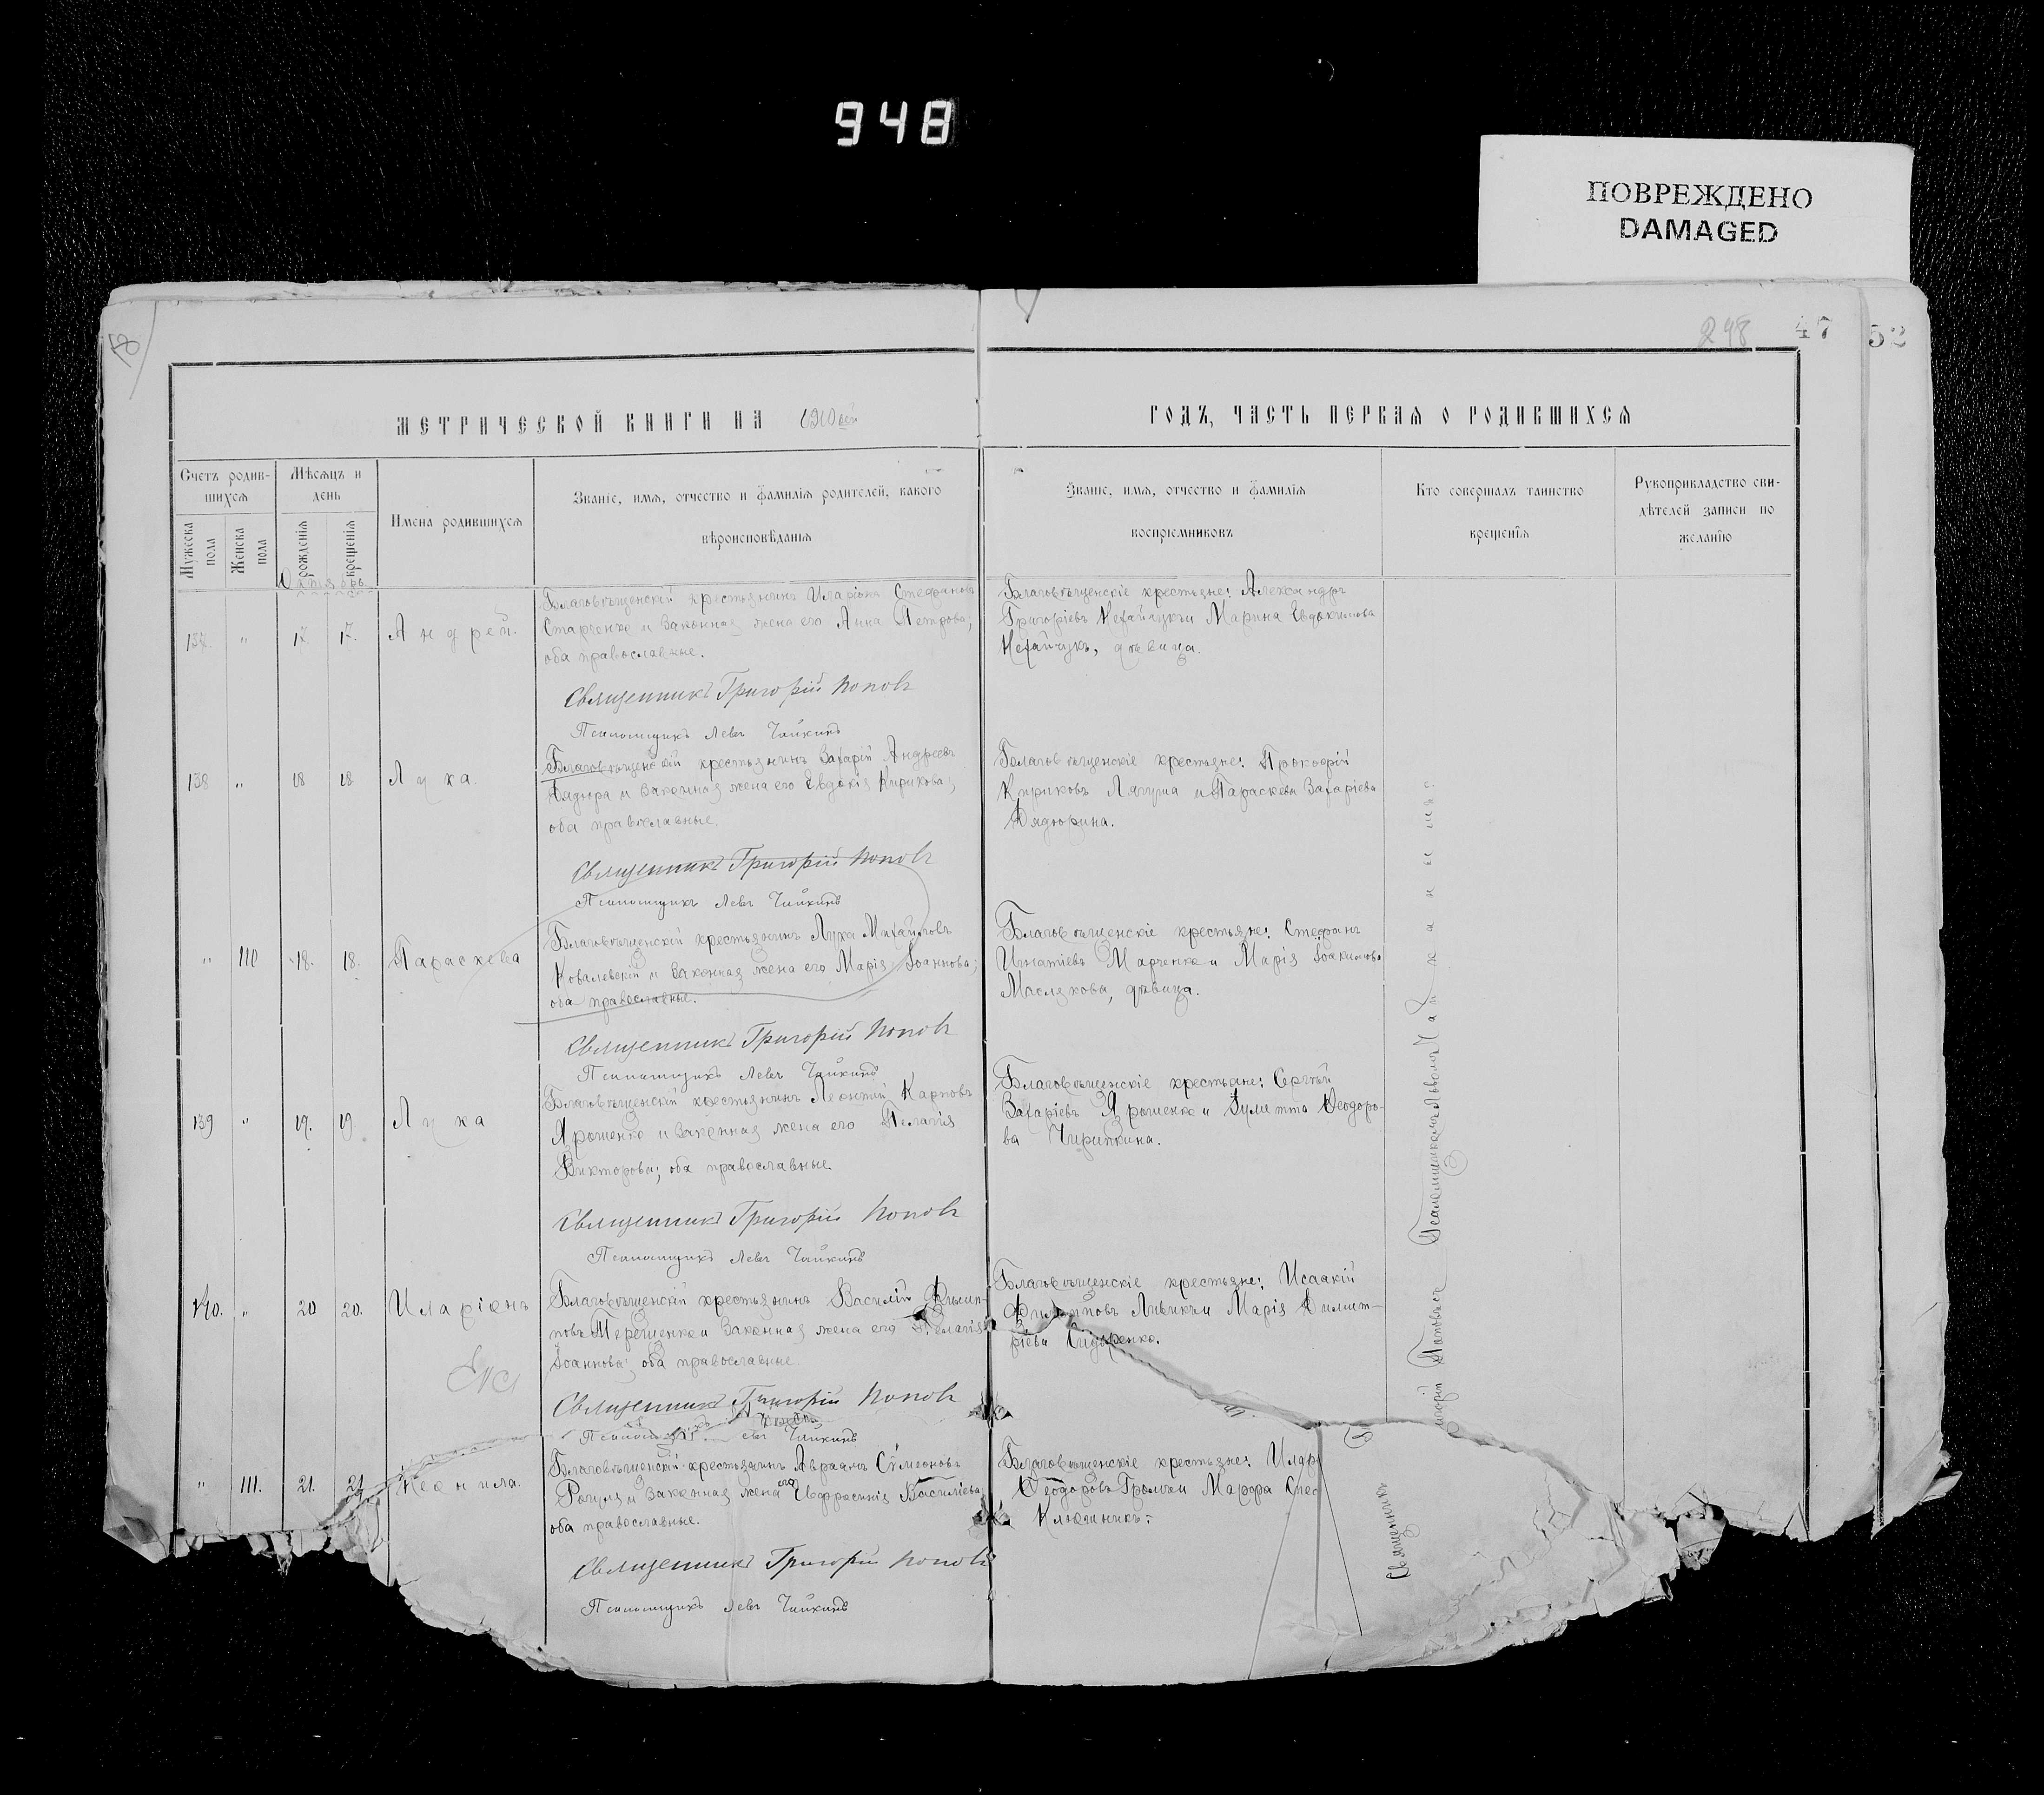 948
ПОВРЕЖДЕНО
DAMAGED
248
47
52
МЕТРИЧЕСКОЙ КНИГИ НА 1910 вый
ГОДЪ, ЧАСТЬ ПЕРВАЯ О РОДИВШИХСЯ
Счетъ родив-
шихся
Мужеска
пола
Женска
пола
Мѣсяцъ и
день
рожденія
крещенія
Имена родившихся
Званіе, имя, отчество и фамилія родителей, какого
вѣроисповѣданія
Званіе, имя, отчество и фамилія
воспріемниковъ
Кто совершалъ таинство
крещенія
Рукоприкладство сви-
дѣтелей записи по
желанію
Октябрь
137. " 17 17. Андрей.
Благовѣщенскій крестьянинъ Иларіонъ Стефановъ
Старченко и законная жена его Анна Петрова;
оба православные.
Благовѣщенскіе крестьяне: Александръ
Григоріевъ Нехайчукъ и Марина Евдокимова
Нехайчукъ, дѣвица.
Священникъ Григорій Поповъ
Псаломщикъ Левъ Чайкинъ
138 " 18 18 Лука.
Благовѣщенскій крестьянинъ Захарій Андреевъ
Дядюра и законная жена его Евдокія Кирикова;
оба православные.
Благовѣщенскіе крестьяне: Прокофій
Кириковъ Лягуша и Параскева Захаріева
Дядюрина.
Священникъ Григорій Поповъ
Псаломщикъ Левъ Чайкинъ
" 110 18. 18. Параскева
Благовѣщенскій крестьянинъ Лука Михайловъ
Ковалевскій и законная жена его Марія Іоаннова;
оба православные.
Благовѣщенскіе крестьяне: Стефанъ
Игнатіевъ Марченко и Марія Іоакимова
Маслякова, дѣвица.
Священникъ Григорій Поповъ
Псаломщикъ Левъ Чайкинъ
139 " 19. 19. Лука
Благовѣщенскій крестьянинъ Леонтій Карповъ
Ярошенко и законная жена его Пелагія
Викторова; оба православные.
Благовѣщенскіе крестьяне: Сергѣй
Захаріевъ Ярошенко и Іулитта Ѳеодоро-
ва Чирипкина.
Священникъ Григорій Поповъ
Псаломщикъ Левъ Чайкинъ
140. " 20 20. Иларіонъ
Благовѣщенскій крестьянинъ Василій Филип-
повъ Мерещенко и законная жена его Пелагія
Іоаннова; оба православные.
Благовѣщенскіе крестьяне: Исаакій
Филипповъ и Марія Димит-
ріева Сидоренко.
Священникъ Григорій Поповъ
Чайкинъ
" 111. 21. 21 Неонила.
Благовѣщенскій крестьянинъ Авраамъ Сѵмеоновъ
и законная жена его Евфросинія Василіева;
оба православные.
Благовѣщенскіе крестьяне: Илар
Ѳеодоровъ и Марфа
Ключникъ.
Священникъ Григорій Поповъ
Псаломщикъ Левъ Чайкинъ
Священникъ
Поповъ съ Псаломщикомъ Львомъ Чайкинымъ.